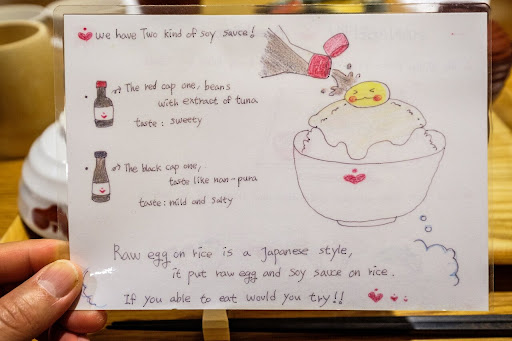 we have Two kind of soy sauce!
The red cap one, beans
with extract of tuna
taste: sweety
The black cap one,
taste like nam-pura
taste: mild and salty
Raw egg on rice is a Japanese style,
it put raw egg and soy sauce on rice.
If you able to eat would you try!!